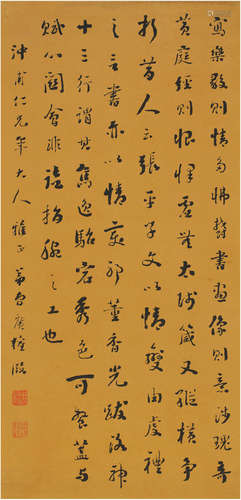 寫樂毅則情多怫鬱書畫像則意涉瑰奇
黃庭經則怡懌虛無太師箴又縱橫爭
折昔人云張平子文以情變由虔禮
之言書亦以情變耶董香光跋洛神
十三行謂其雋逸駘宕秀色可餐蓋與
賦心闇會非詣指腕之工也
沖甫仁兄年大人雅正